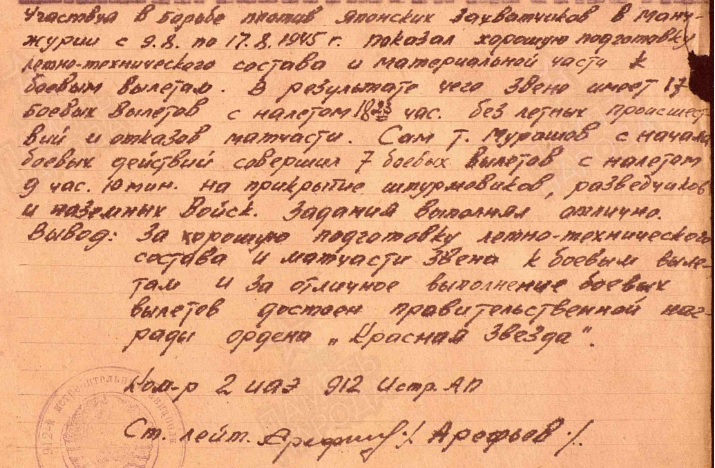 Участвуя в борьбе против Японских захватчиков в Мань-
журии с 9.8. по 17.8.1945 г. показал хорошую подготовку
летно-технического состава и материальной части к
боевым вылетам. В результате чего звено имеет 17
боевых вылетов с налетом час. без летных происшест
вий и отказов матчасти. Сам т. Мурашов с начала
боевых действий совершил 7 боевых вылетов с налетом
9 час. 10 мин. на прикрытие штурмовиков, разведчиков
и наземных войск. Задания выполнял отлично.
Вывод: За хорошую подготовку летно-технического
состава и матчасти звена к боевым выле-
там и за отличное выполнение боевых
вылетов достоен правительственной наг-
рады ордена „Красная Звезда".
Ком-р 2 иаэ 912 Истр. АП
Ст. лейт. /Арефьев/.
912-й истребительный